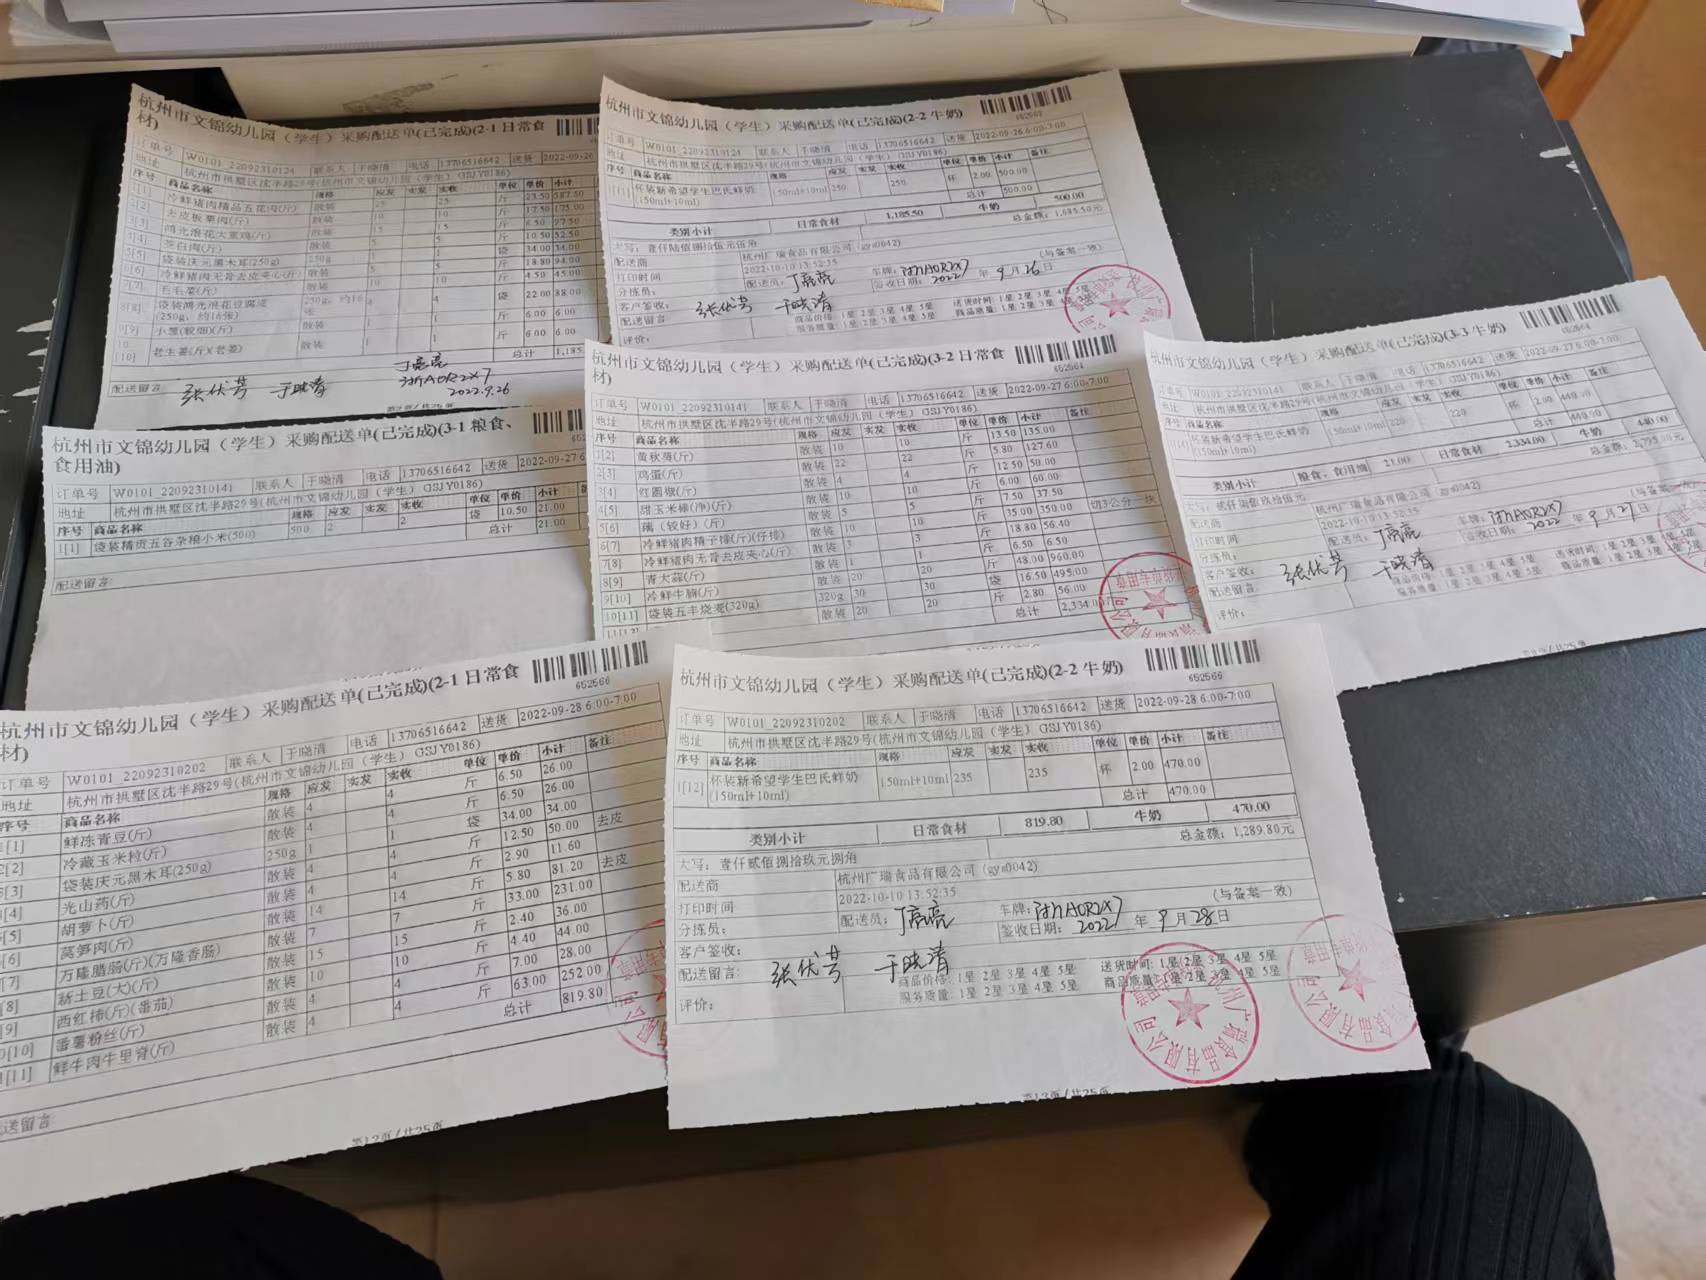 杭州市文锦幼儿园（学生）采购配送单(已完成)(2-1 日常食
材)
订单号 W0101_22092310124 联系人 于晓清 电话 13706516642 送货 2022-09-26
地址 杭州市拱墅区沈半路29号(杭州市文锦幼儿园（学生）GSJY0186)
序号 商品名称 规格 应发 实发 实收 单位 单价 小计
1[1] 冷鲜猪肉精品五花肉(斤) 散装 25 25 斤 23.50 587.50
2[2] 去皮板栗肉(斤) 散装 10 10 斤 17.50 175.00
3[3] 鸿光浪花大熏鸡(斤) 散装 15 15 斤 6.50 97.50
4[4] 茭白肉(斤) 散装 5 5 斤 10.50 52.50
5[5] 袋装庆元黑木耳(250g) 250g 1 1 袋 34.00 34.00
6[6] 冷鲜猪肉无骨去皮夹心(斤) 散装 5 5 斤 18.80 94.00
7[7] 毛毛菜(斤) 散装 10 10 斤 4.50 45.00
8[8] 袋装鸿光浪花豆腐皮(250g, 约16张) 250g, 约16张 4 4 袋 22.00 88.00
9[9] 小葱(较细)(斤) 散装 1 1 斤 6.00 6.00
10[10] 老生姜(斤)(老姜) 散装 1 1 斤 6.00 6.00
总计 1,185.
配送留言:
张优芳 于晓清
丁亮亮
浙A0R2X7
2022.9.26
杭州市文锦幼儿园（学生）采购配送单(已完成)(2-2 牛奶)
订单号 W0101_22092310124 联系人 于晓清 电话 13706516642 送货 2022-09-26 6:00-7:00
地址 杭州市拱墅区沈半路29号(杭州市文锦幼儿园（学生）GSJY0186)
序号 商品名称 规格 应发 实发 实收 单位 单价 小计 备注
1[11] 杯装新希望学生巴氏鲜奶(150ml+10ml) 150ml+10ml 250 250 杯 2.00 500.00
总计 500.00
类别小计 日常食材 1,185.50 牛奶 500.00
总金额: 1,685.50元
大写: 壹仟陆佰捌拾伍元伍角
配送商 杭州广瑞食品有限公司（gys0042)
打印时间 2022-10-10 13:52:35 (与备案一致)
分拣员: 配送员: 丁亮亮 车牌: 浙A0R2X7
客户签收: 张优芳 于晓清 签收日期: 2022 年 9 月 26 日
配送留言 商品价格: 1星 2星 3星 4星 5星 送货时间: 1星 2星 3星 4星 5星
评价: 服务质量: 1星 2星 3星 4星 5星 商品质量: 1星 2星 3星 4星 5星
杭州市文锦幼儿园（学生）采购配送单(已完成)(3-1 粮食、
食用油)
订单号 W0101_22092310141 联系人 于晓清 电话 13706516642 送货 2022-09-27 6:00
地址 杭州市拱墅区沈半路29号(杭州市文锦幼儿园（学生）GSJY0186)
序号 商品名称 规格 应发 实发 实收 单位 单价 小计
1[1] 袋装精贡五谷杂粮小米(500) 500 2 2 袋 10.50 21.00
总计 21.00
配送留言:
杭州市文锦幼儿园（学生）采购配送单(已完成)(3-2 日常食
材)
652561
订单号 W0101_22092310141 联系人 于晓清 电话 13706516642 送货 2022-09-27 6:00-7:00
地址 杭州市拱墅区沈半路29号(杭州市文锦幼儿园（学生）GSJY0186)
序号 商品名称 规格 应发 实发 实收 单位 单价 小计 备注
1[2] 黄秋葵(斤) 散装 10 10 斤 13.50 135.00
2[3] 鸡蛋(斤) 散装 22 22 斤 5.80 127.60
3[4] 红圆椒(斤) 散装 4 4 斤 12.50 50.00
4[5] 甜玉米棒(净)(斤) 散装 10 10 斤 6.00 60.00
5[6] 藕（较好）(斤) 散装 5 5 斤 7.50 37.50
6[7] 冷鲜猪肉精子排(斤)(仔排) 散装 10 10 斤 35.00 350.00 切3公分一块
7[8] 冷鲜猪肉无骨去皮夹心(斤) 散装 3 3 斤 18.80 56.40
8[9] 青大蒜(斤) 散装 1 1 斤 6.50 6.50
9[10] 冷鲜牛腩(斤) 散装 20 20 斤 48.00 960.00
10[11] 袋装五丰烧麦(320g) 320g 30 30 袋 16.50 495.00
散装 20 20 斤 2.80 56.00
总计 2,334.00
杭州市文锦幼儿园（学生）采购配送单(已完成)(3-3 牛奶)
订单号 W0101_22092310141 联系人 于晓清 电话 13706516642 送货 2022-09-27 6:00-7:00
地址 杭州市拱墅区沈半路29号(杭州市文锦幼儿园（学生）GSJY0186)
序号 商品名称 规格 应发 实发 实收 单位 单价 小计 备注
杯装新希望学生巴氏鲜奶(150ml+10ml) 150ml+10ml 220 220 杯 2.00 440.00
总计 440.00
类别小计 粮食、食用油 21.00 日常食材 2,334.00 牛奶 440.00
总金额: 2,795.00元
大写: 贰仟柒佰玖拾伍元
配送商 杭州广瑞食品有限公司（gys0042)
打印时间 2022-10-10 13:52:35 (与备案一致)
分拣员: 配送员: 丁亮亮 车牌: 浙A0R2X7
客户签收: 张优芳 于晓清 签收日期: 2022 年 9 月 27 日
配送留言 商品价格: 1星 2星 3星 4星 5星 送货时间: 1星 2星 3星 4星 5星
评价: 服务质量: 1星 2星 3星 4星 5星 商品质量: 1星 2星 3星 4星 5星
杭州市文锦幼儿园（学生）采购配送单(已完成)(2-1 日常食
材)
652566
订单号 W0101_22092310202 联系人 于晓清 电话 13706516642 送货 2022-09-28 6:00-7:00
地址 杭州市拱墅区沈半路29号(杭州市文锦幼儿园（学生）GSJY0186)
序号 商品名称 规格 应发 实发 实收 单位 单价 小计 备注
[1] 鲜冻青豆(斤) 散装 4 4 斤 6.50 26.00
[2] 冷藏玉米粒(斤) 散装 4 4 斤 6.50 26.00
[3] 袋装庆元黑木耳(250g) 250g 1 1 袋 34.00 34.00
[4] 光山药(斤) 散装 4 4 斤 12.50 50.00 去皮
[5] 胡萝卜(斤) 散装 4 4 斤 2.90 11.60
[6] 莴笋肉(斤) 散装 14 14 斤 5.80 81.20 去皮
[7] 万隆腊肠(斤)(万隆香肠) 散装 7 7 斤 33.00 231.00
[8] 新土豆(大)(斤) 散装 15 15 斤 2.40 36.00
[9] 西红柿(斤)(番茄) 散装 10 10 斤 4.40 44.00
[10] 番薯粉丝(斤) 散装 4 4 斤 7.00 28.00
[11] 鲜牛肉牛里脊(斤) 散装 4 4 斤 63.00 252.00
总计 819.80
送留言
第12页/共25页
杭州市文锦幼儿园（学生）采购配送单(已完成)(2-2 牛奶)
652566
订单号 W0101_22092310202 联系人 于晓清 电话 13706516642 送货 2022-09-28 6:00-7:00
地址 杭州市拱墅区沈半路29号(杭州市文锦幼儿园（学生）GSJY0186)
序号 商品名称 规格 应发 实发 实收 单位 单价 小计 备注
1[12] 杯装新希望学生巴氏鲜奶(150ml+10ml) 150ml+10ml 235 235 杯 2.00 470.00
总计 470.00
类别小计 日常食材 819.80 牛奶 470.00
总金额: 1,289.80元
大写: 壹仟贰佰捌拾玖元捌角
配送商 杭州广瑞食品有限公司（gys0042)
打印时间 2022-10-10 13:52:35 (与备案一致)
分拣员: 配送员: 丁亮亮 车牌: 浙A0R2X7
客户签收: 张优芳 于晓清 签收日期: 2022 年 9 月 28 日
配送留言: 商品价格: 1星 2星 3星 4星 5星 送货时间: 1星 2星 3星 4星 5星
评价: 服务质量: 1星 2星 3星 4星 5星 商品质量: 1星 2星 3星 4星 5星
杭州广瑞食品有限公司
第13页/共25页